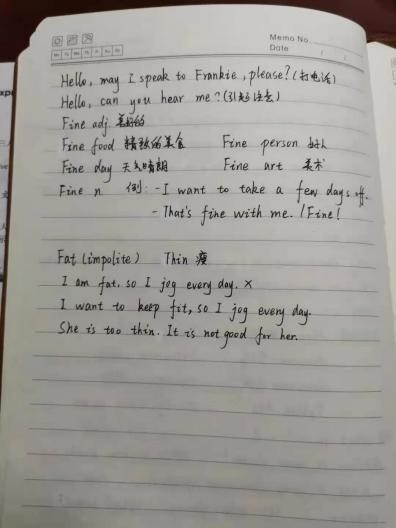 Memo No.
Date / /
Mo Tu We Th Fr Sa Su
Hello, may I speak to Frankie, please? (打电话)
Hello, can you hear me? (引起注意)
Fine adj. 美好的
Fine food 精致的美食 Fine person 好人
Fine day 天气晴朗 Fine art 美术
Fine n 例: - I want to take a few days off.
- That's fine with me. / Fine!
Fat (impolite) Thin 瘦
I am fat. so I jog every day. ×
I want to keep fit, so I jog every day.
She is too thin. It is not good for her.